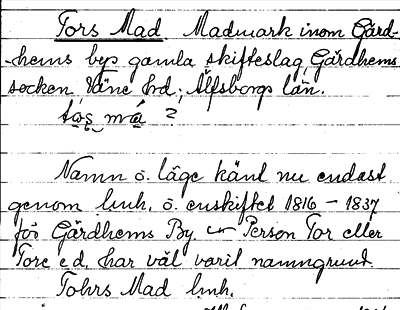 Tors Mad Madmark inom Gärd-
-hems bys gamla skifteslag, Gärdhems
socken Väne hrd; Älfsborgs län.
tos̠ må ?
Namn o. läge känt nu endast
genom lmh. o. enskiftet 1816 - 1837
för Gärdhems By. Person Tor eller
Tore e d. har väl varit namngrund.
Tohrs Mad lmh.